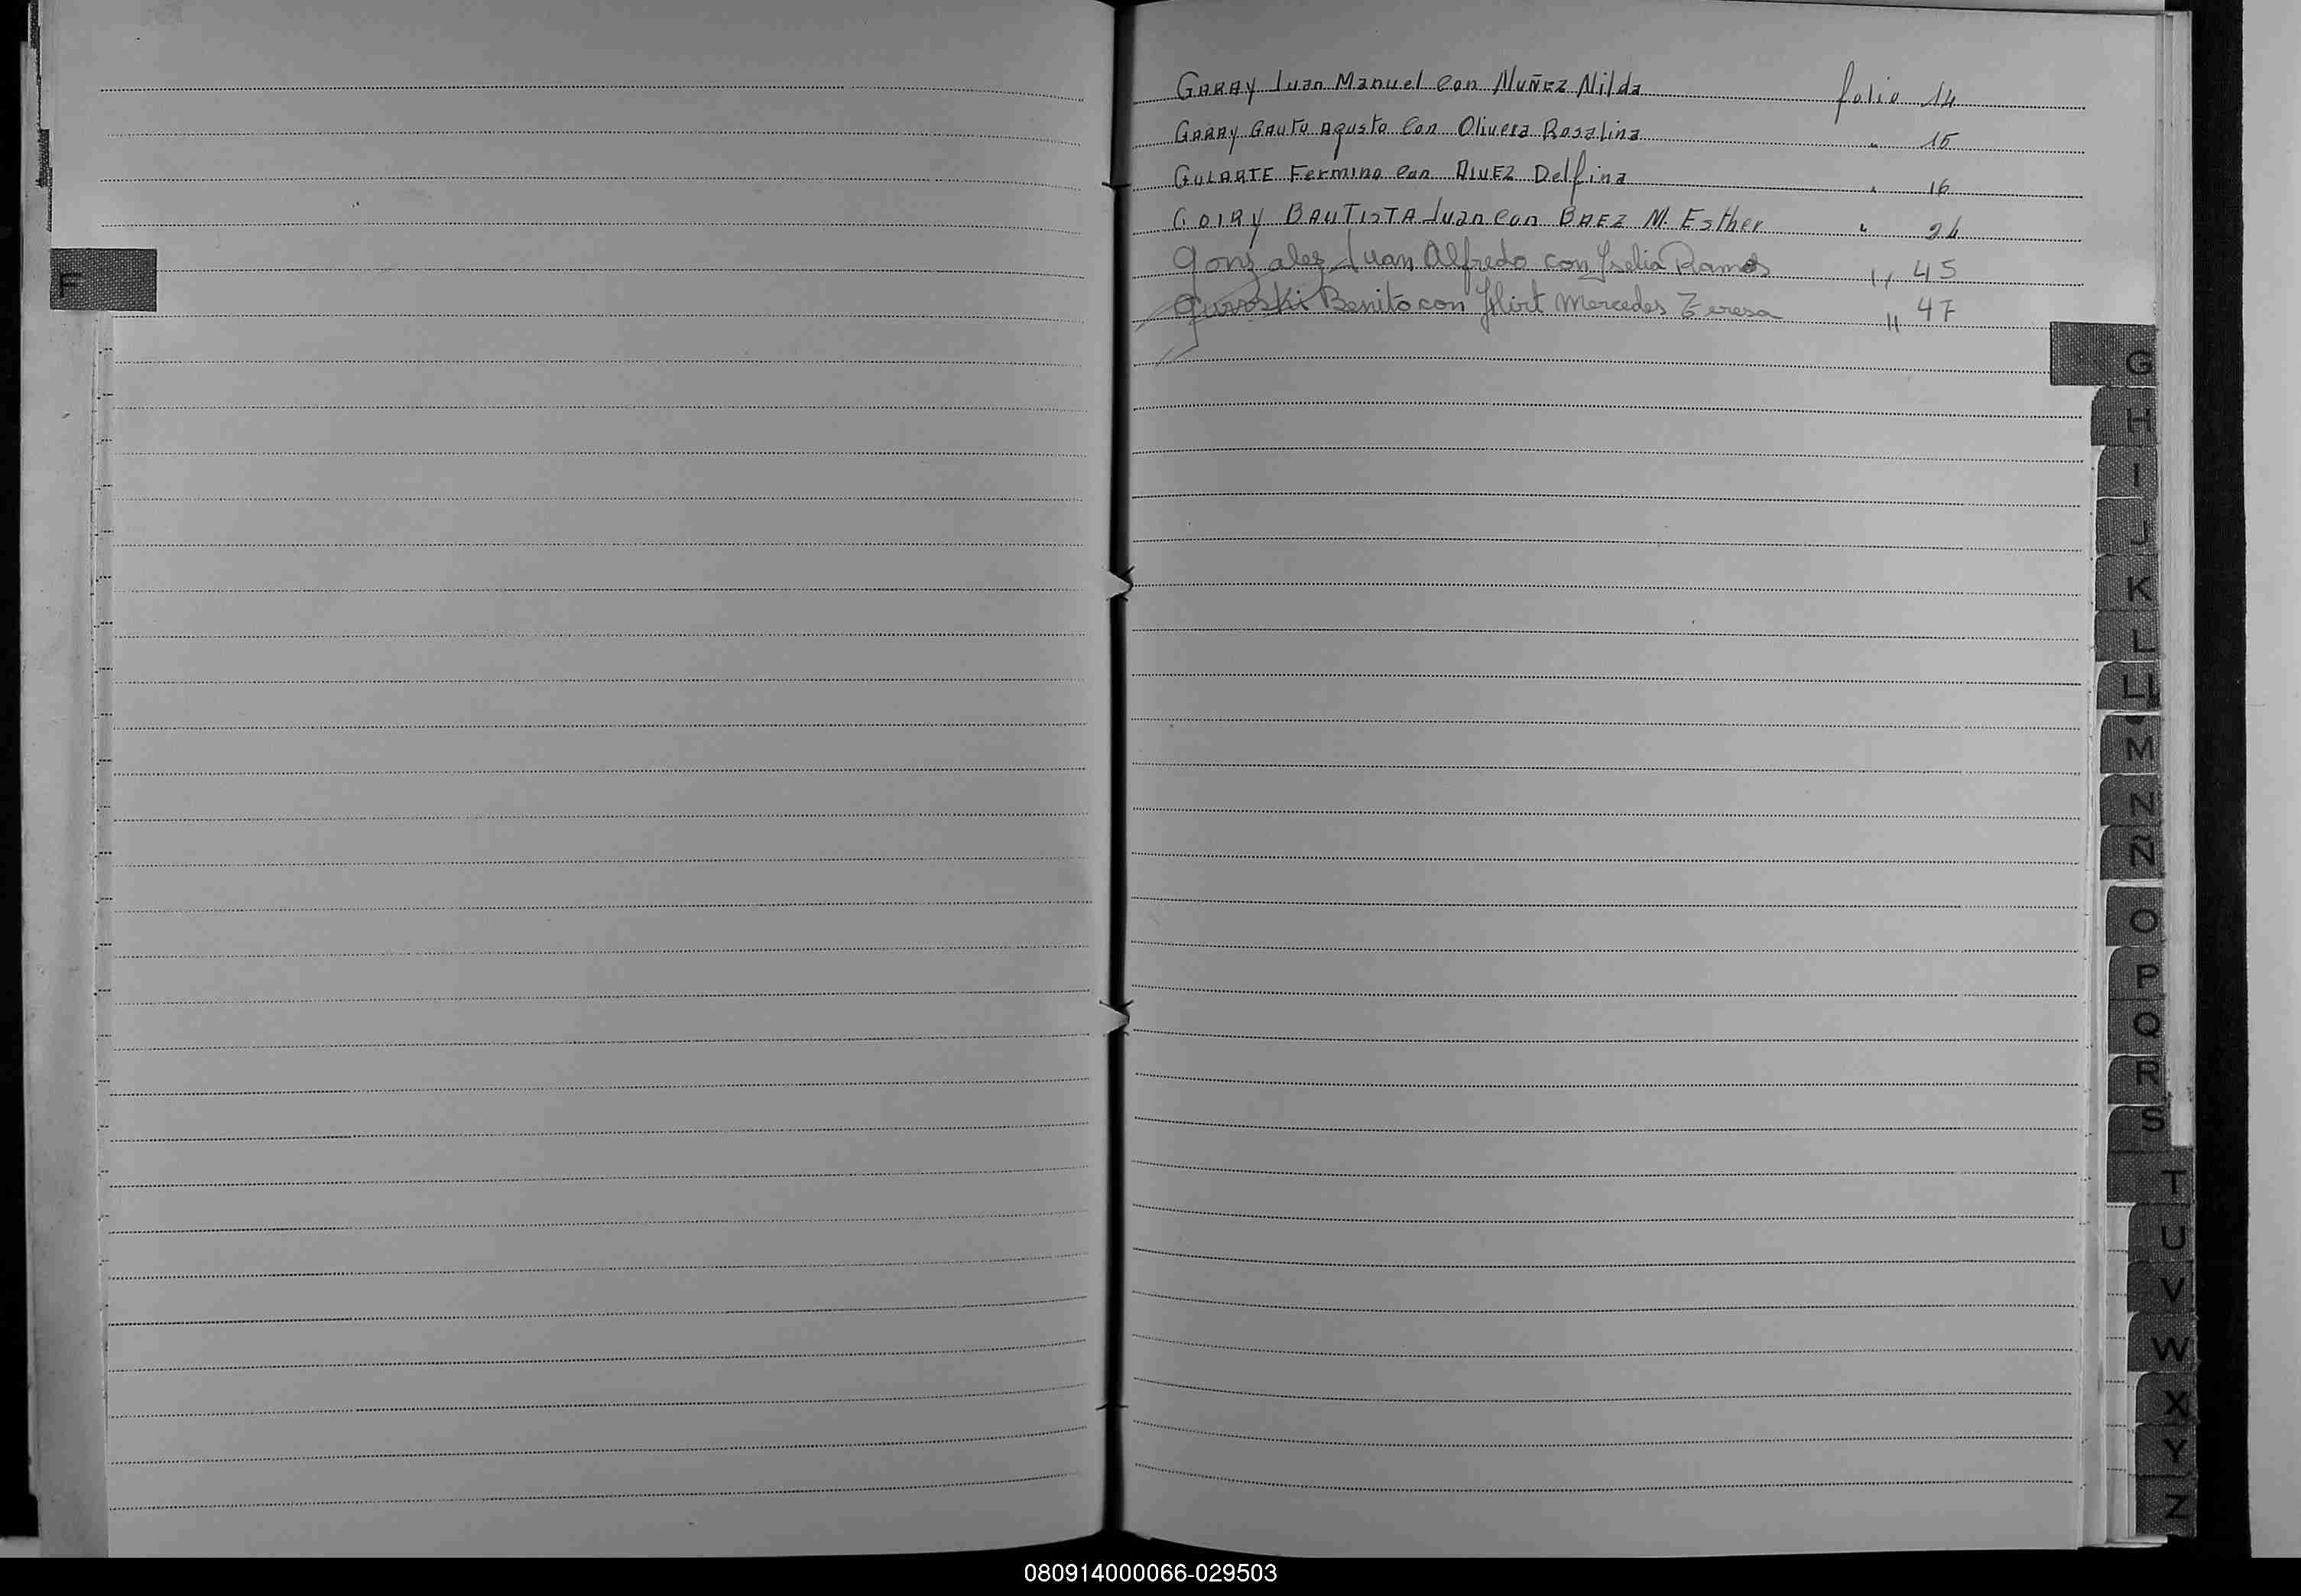 F
GARAY Juan Manuel con NUÑEZ Nilda folio 14
GARAY GAUTO Agusto con Olivera Rosalina " 15
GULARTE Fermino con ALVEZ Delfina " 16
GOIRY BAUTISTA Juan con BAEZ M. Esther "
Gonzalez Juan Alfredo con Ramos " 45
Benito con Mercedes Teresa " 47
G
H
I
J
K
L
LL
M
N
Ñ
O
P
Q
R
S
T
U
V
W
X
Y
Z
080914000066-029503